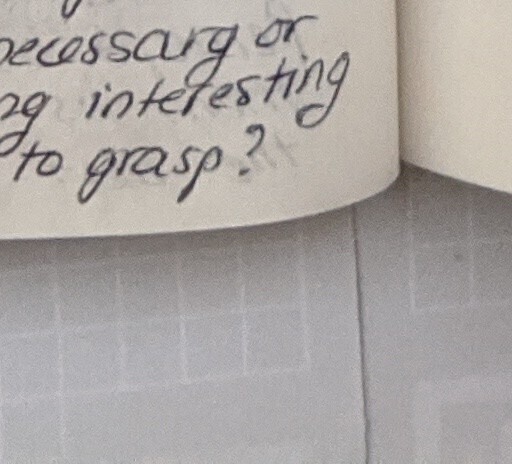 necessary or
ng interesting
to grasp?